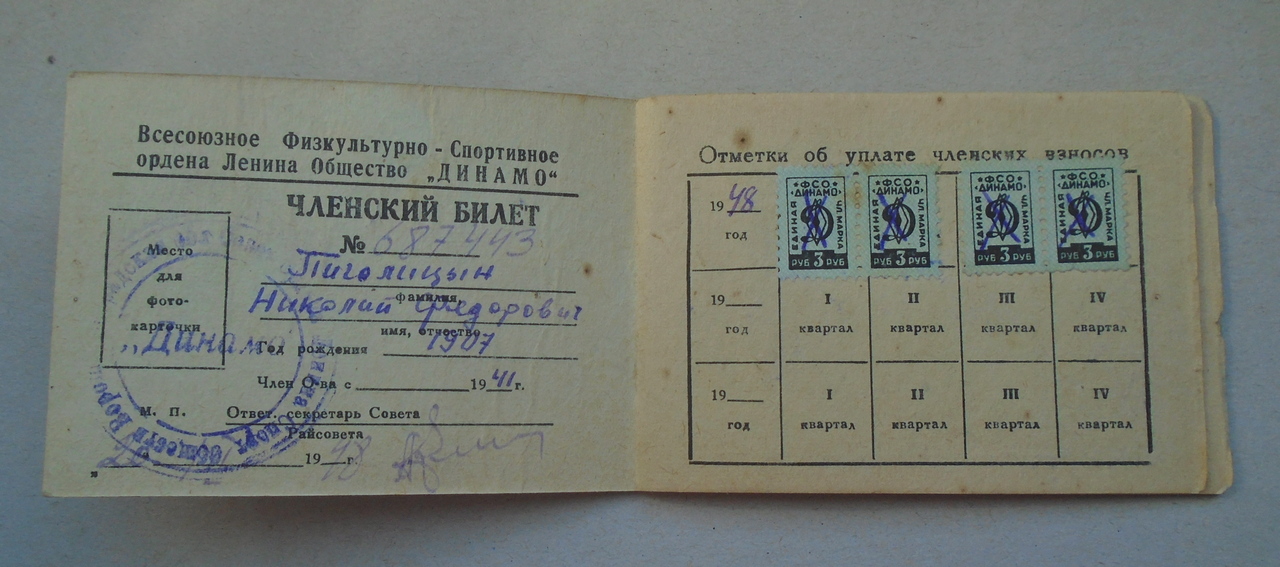 Всесоюзное Физкультурно - Спортивное
ордена Ленина Общество „ДИНАМО“
ЧЛЕНСКИЙ БИЛЕТ
№ 687443
Пиголицын
фамилия
Николай Федорович
имя, отчество
Год рождения 1907
Член О-ва с 1941 г.
Место
для
фото-
карточки
„Динамо
М. П.
Ответ. секретарь Совета
Райсовета
1948 г.
Отметки об уплате членских взносов
1948
год
ФСО
ДИНАМО
ЕДИНАЯ
ЧЛ. МАРКА
РУБ 3 РУБ
ФСО
ДИНАМО
ЕДИНАЯ
ЧЛ. МАРКА
РУБ 3 РУБ
ФСО
ДИНАМО
ЕДИНАЯ
ЧЛ. МАРКА
РУБ 3 РУБ
ФСО
ДИНАМО
ЕДИНАЯ
ЧЛ. МАРКА
РУБ 3 РУБ
19 I II III IV
год квартал квартал квартал квартал
19 I II III IV
год квартал квартал квартал квартал